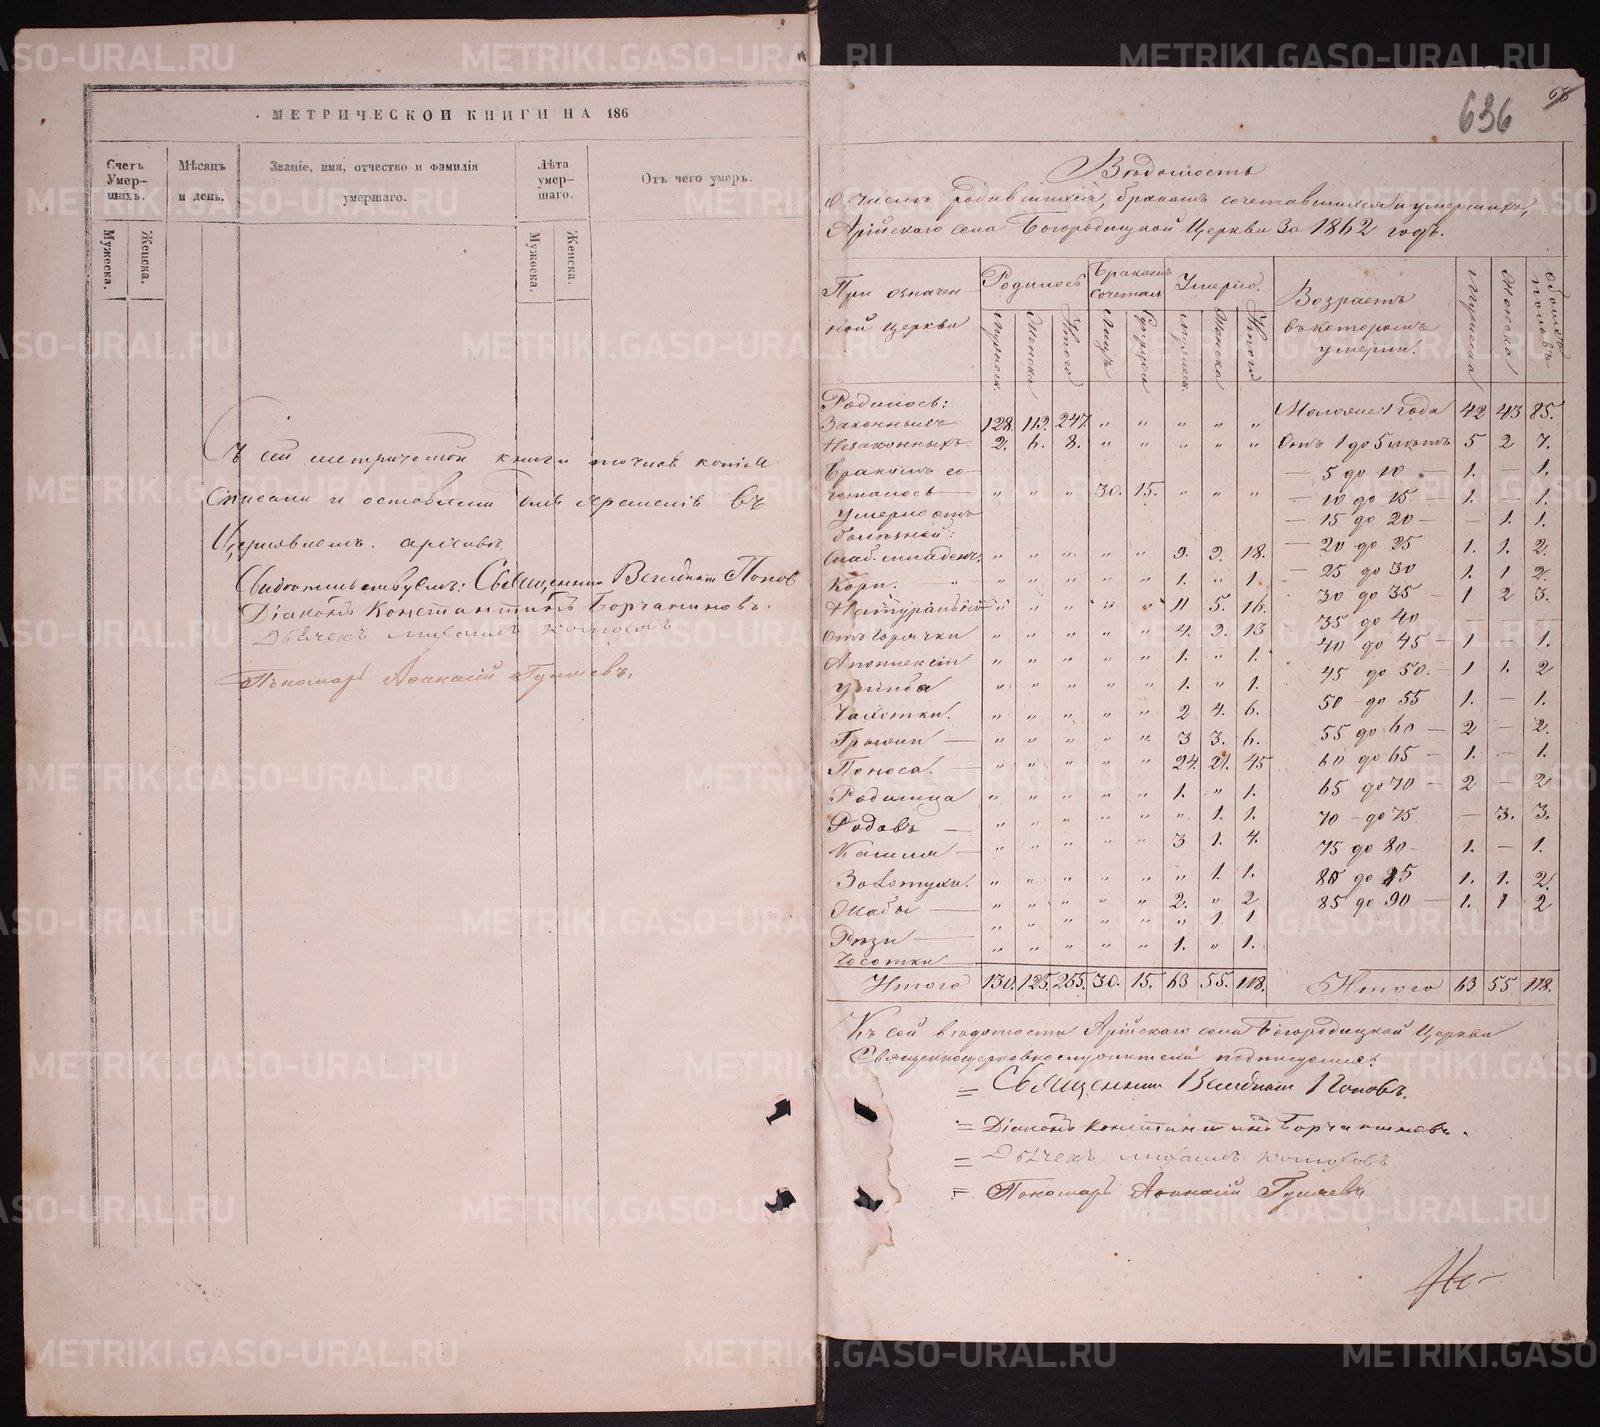 МЕТРИЧЕСКОЙ КНИГИ НА 186
Счетъ Умер-шихъ.
Мѣсяцъ и день.
Званіе, имя, отчество и фамилія умершаго.
Лѣта умер-шаго.
Отъ чего умеръ.
Мужеска. Женска. Мужеска. Женска.
Съ сей метрической книги точная копія
списана и оставлена для храненія въ
Церковномъ архивѣ
Свидѣтельствуемъ: Священник Попов
Діаконъ Константинъ Борчаниновъ.
Дьячекъ Михаилъ
Пономарь Аѳанасій
68
636
Вѣдомость
о числѣ родившихся, бракомъ сочетавшихся и умершихъ,
Арійскаго села Богородицкой Церкви за 1862 годъ.
При означен- Родилось Бракомъ сочетал. Умерло. Возрастъ Мужеска Женска обоего полов
ной церкви Мужеск. Женска Итого Паръ Мужеск. Женска Итого въ которомъ умерли.
Родилось:
Законныхъ 128. 119. 247. " " " " "
Незаконныхъ. 2. 6. 8. " " " " "
Бракомъ со-
четалось " " " 30. 15. " " "
Умерло отъ
болѣзней:
Слаб. младенч. " " " " " 9. 9. 18.
Кори. " " " " " 1. " 1.
Натуральной " " " " " 11 5. 16.
Отъ горячки " " " " " 4. 9. 13
Апоплексіи " " " " " 1. " 1.
Ушиба " " " " " 1. " 1.
Чахотки. " " " " " 2 4. 6.
Грыжи " " " " " 3 3. 6.
Поноса. " " " " " 24. 21. 45
Родимца " " " " " 1. " 1.
Родовъ " " " " " " 1. 1.
Кашля " " " " " 3 1. 4.
Золотухи. " " " " " " 1. 1.
Жабы " " " " " 2. " 2
Рѣзи " " " " " " 1. 1
Чесотки " " " " " 1. " 1.
Итого 130. 125. 255. 30. 15. 63 55. 118.
Моложе 1 года 42 43 85.
Отъ 1 до 5 лѣтъ 5 2 7.
— 5 до 10 — 1. — 1.
— 10 до 15 — 1. — 1.
— 15 до 20 — — 1. 1.
— 20 до 25 1. 1. 2.
— 25 до 30 1. 1 2.
30 до 35 — 1 2 3.
35 до 40 — — —
40 до 45 — 1 — 1.
45 до 50. — 1 1. 2
50 — до 55 1. — 1.
55 до 60 — 2 — 2.
60 до 65 — 1. — 1.
65 до 70 — 2 — 2
70 — до 75 — 3. 3.
75 до 80 — 1. — 1.
80 до 85 1. 1. 2.
85 до 90 — 1. 1 2
Итого 63 55 118.
Къ сей вѣдомости Арійскаго села Богородицкой Церкви
Священноцерковнослужители подписуемся:
= Священник Поповъ.
= Діаконъ Константинъ Борчаниновъ.
= Дьячекъ Михаилъ
= Пономарь Аѳанасій
METRIKI.GASO-URAL.RU